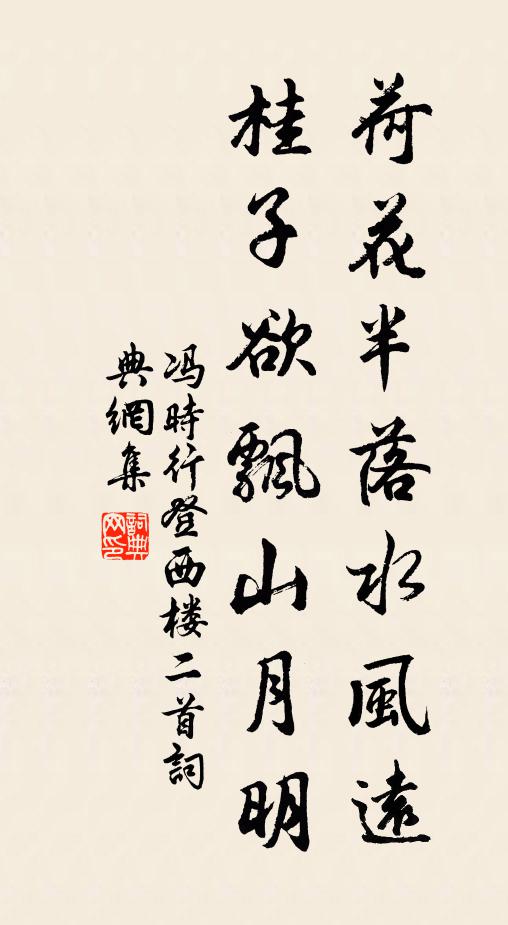 荷花半落水風遠
桂子欲飄山月明
冯時行登西楼二首詞
典網集
詞典
网印